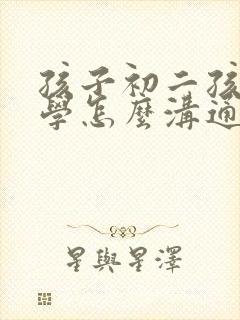 孩子初二孩
學怎麼溝通
星與星澤